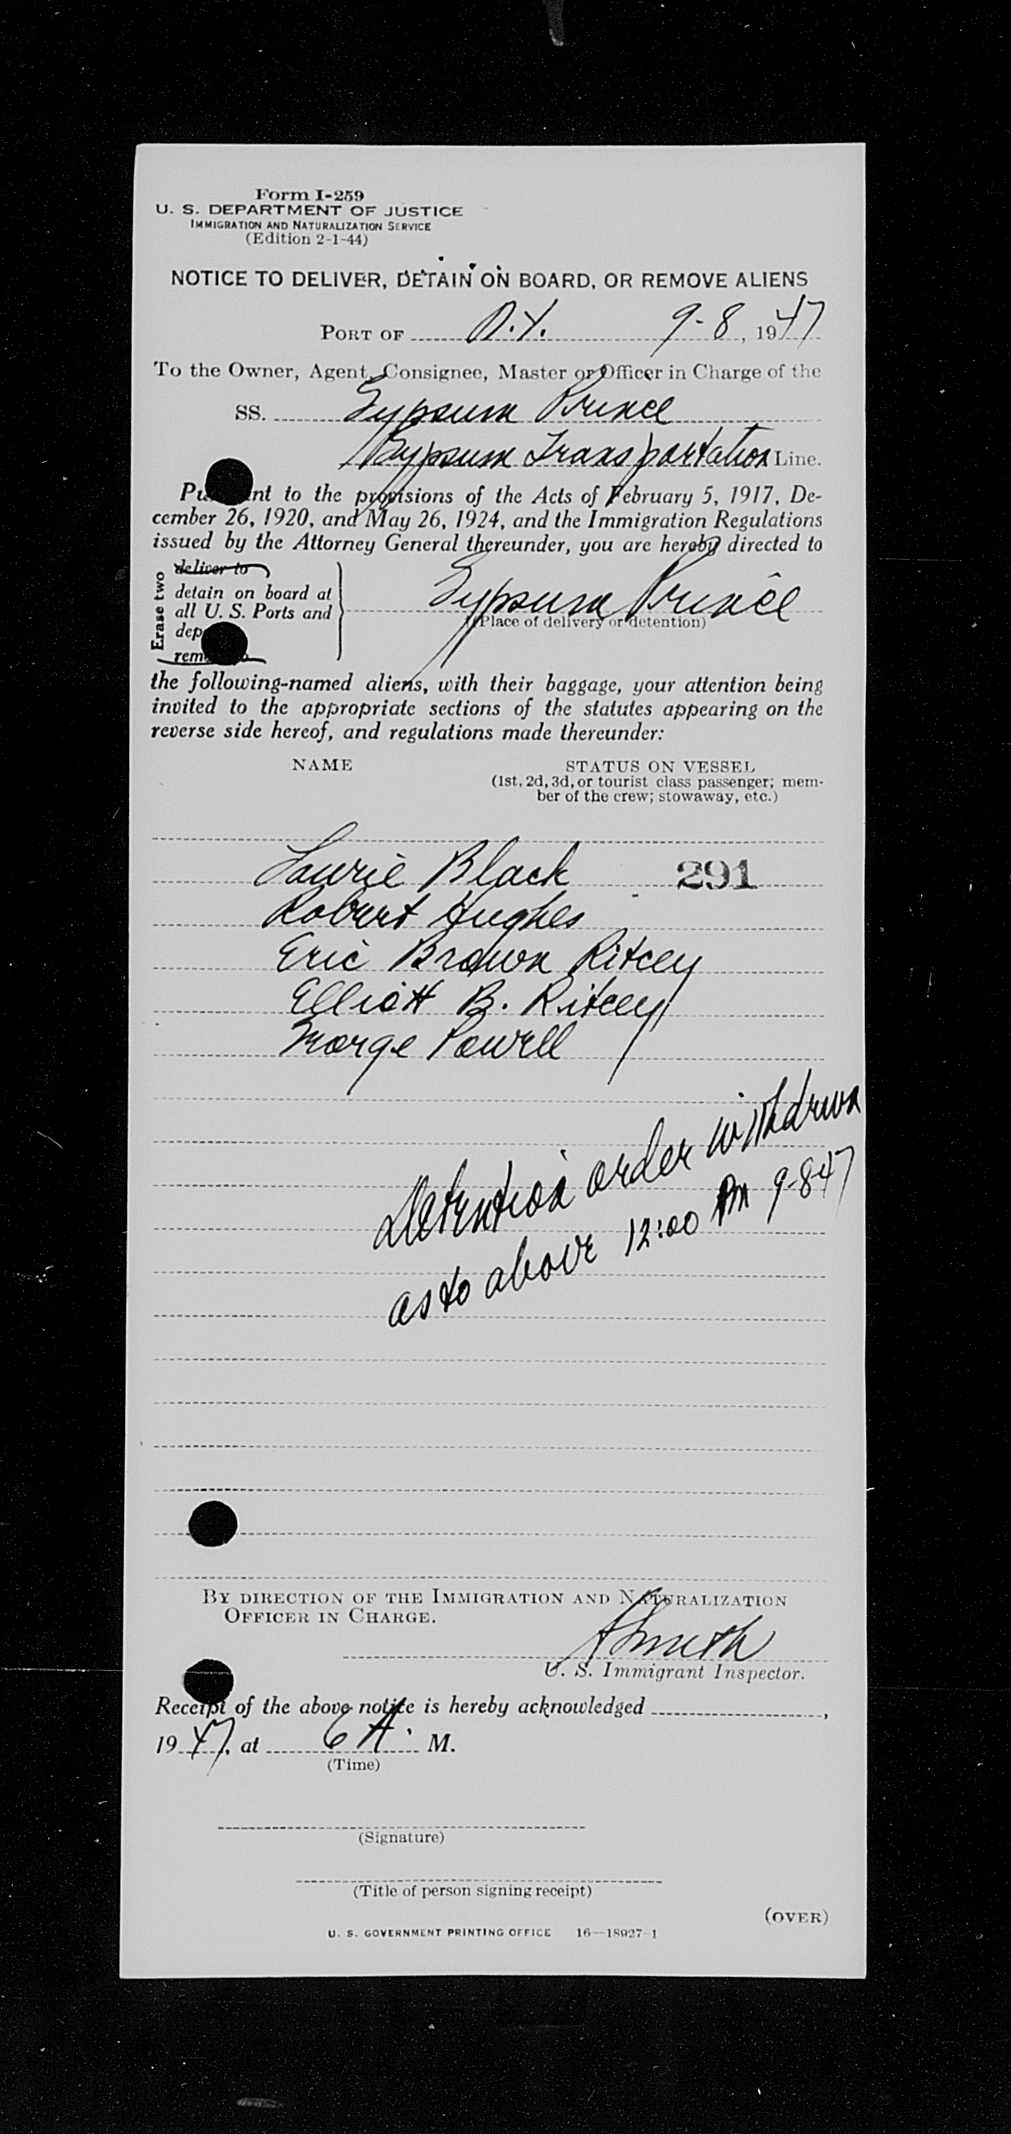 Form I-259
U. S. DEPARTMENT OF JUSTICE
IMMIGRATION AND NATURALIZATION SERVICE
(Edition 2-1-44)
NOTICE TO DELIVER, DETAIN ON BOARD, OR REMOVE ALIENS
PORT OF N.Y. 9-8, 1947
To the Owner, Agent, Consignee, Master or Officer in Charge of the
SS. Gypsum Prince
Gypsum Transportation Line.
to the provisions of the Acts of February 5, 1917, De-
cember 26, 1920, and May 26, 1924, and the Immigration Regulations
issued by the Attorney General thereunder, you are hereby directed to
Erase two
deliver to
detain on board at
all U. S. Ports and
Gypsum Prince
(Place of delivery or detention)
the following-named aliens, with their baggage, your attention being
invited to the appropriate sections of the statutes appearing on the
reverse side hereof, and regulations made thereunder:
NAME STATUS ON VESSEL
(1st, 2d, 3d, or tourist class passenger; mem-
ber of the crew; stowaway, etc.)
Laurie Black 291
Robert Hughes
Eric Brown Ritcey
Elliott B. Ritcey
George Powell
Detention order withdrwn
as to above 12:00 Pm 9-847
BY DIRECTION OF THE IMMIGRATION AND NATURALIZATION
OFFICER IN CHARGE.
Smith
U. S. Immigrant Inspector.
Receipt of the above notice is hereby acknowledged ,
1947, at 6 A. M.
(Time)
(Signature)
(Title of person signing receipt)
(OVER)
U. S. GOVERNMENT PRINTING OFFICE 16—18927-1